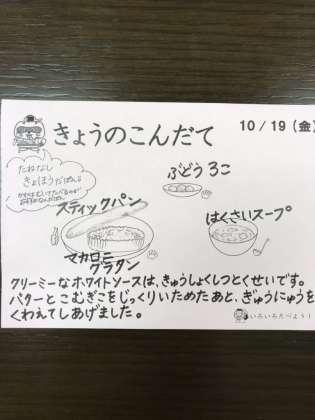 きょうのこんだて
10/19(金)
たねなし
きょほうだよ
ぶどう3こ
スティックパン
はくさいスープ
マカロニ
グラタン
クリーミーなホワイトソースは、きゅうしょくしつとくせいです。
バターとこむぎこをじっくりいためたあと、ぎゅうにゅうを
くわえてしあげました。
いろいろたべよう!